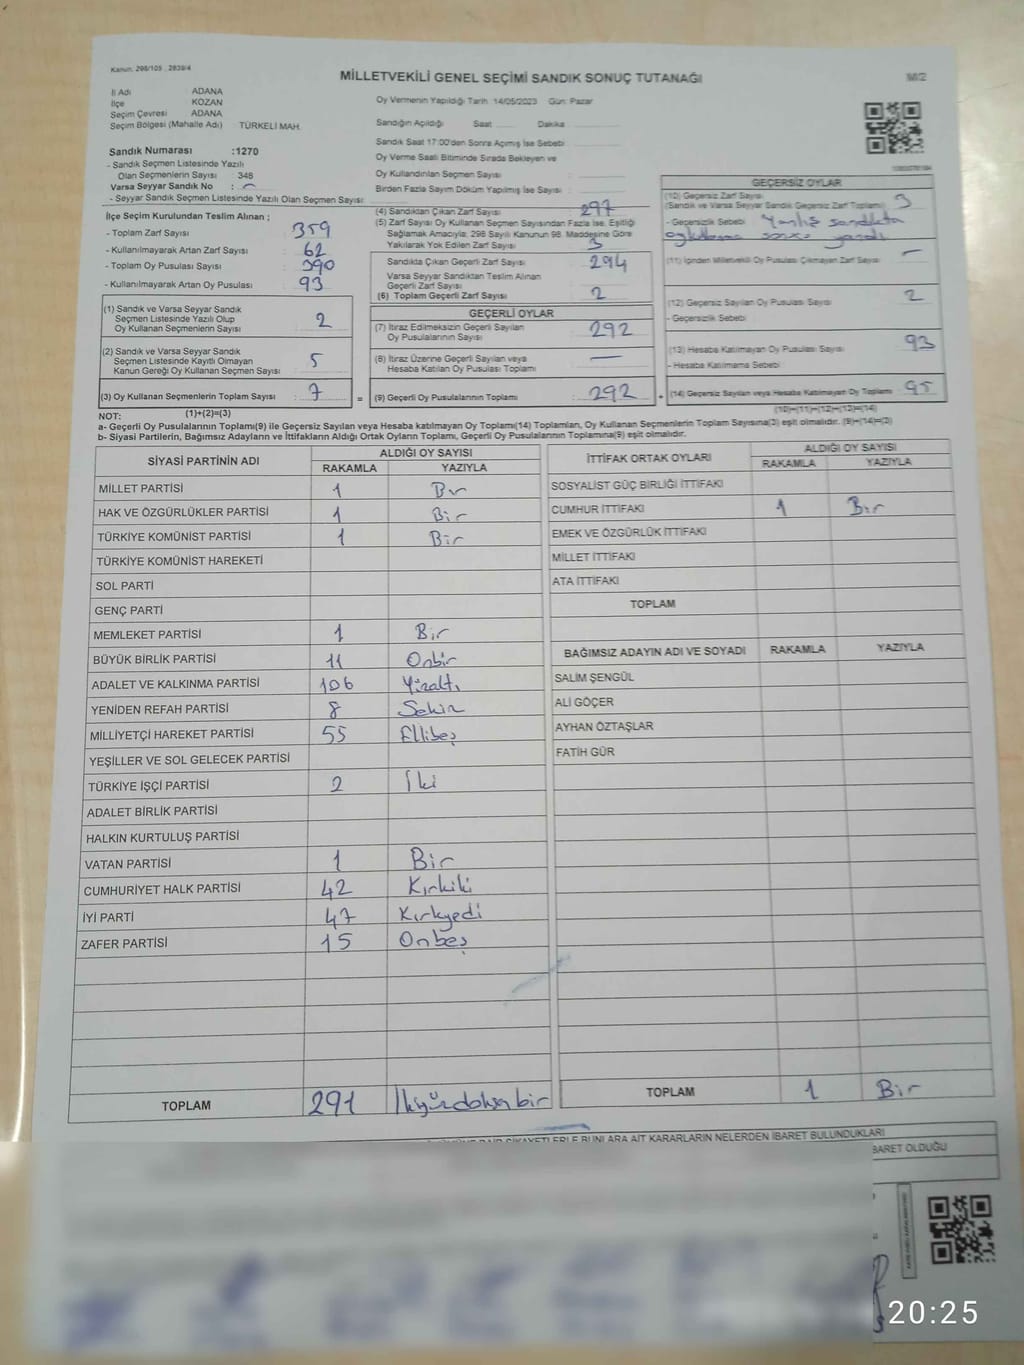 Kanun: 298/105 , 2839/4
MİLLETVEKİLİ GENEL SEÇİMİ SANDIK SONUÇ TUTANAĞI
M/2
İl Adı ADANA
İlçe KOZAN
Seçim Çevresi ADANA
Seçim Bölgesi (Mahalle Adı) TÜRKELİ MAH.
Oy Vermenin Yapıldığı Tarih: 14/05/2023 Gün: Pazar
Sandığın Açıldığı Saat Dakika
Sandık Saat 17:00'den Sonra Açımış İse Sebebi
Oy Verme Saati Bitiminde Sırada Bekleyen ve
Oy Kullandırılan Seçmen Sayısı
Birden Fazla Sayım Döküm Yapılmış İse Sayısı
Sandık Numarası :1270
- Sandık Seçmen Listesinde Yazılı
Olan Seçmenlerin Sayısı : 348
Varsa Seyyar Sandık No :
- Seyyar Sandık Seçmen Listesinde Yazılı Olan Seçmen Sayısı
İlçe Seçim Kurulundan Teslim Alınan ;
- Toplam Zarf Sayısı : 359
- Kullanılmayarak Artan Zarf Sayısı : 62
- Toplam Oy Pusulası Sayısı : 390
- Kullanılmayarak Artan Oy Pusulası : 93
(1) Sandık ve Varsa Seyyar Sandık
Seçmen Listesinde Yazılı Olup
Oy Kullanan Seçmenlerin Sayısı : 2
(2) Sandık ve Varsa Seyyar Sandık
Seçmen Listesinde Kayıtlı Olmayan
Kanun Gereği Oy Kullanan Seçmen Sayısı : 5
(3) Oy Kullanan Seçmenlerin Toplam Sayısı : 7 =
(4) Sandıktan Çıkan Zarf Sayısı : 297
(5) Zarf Sayısı Oy Kullanan Seçmen Sayısından Fazla İse, Eşitliği
Sağlamak Amacıyla, 298 Sayılı Kanunun 98. Maddesine Göre
Yakılarak Yok Edilen Zarf Sayısı : 3
Sandıkta Çıkan Geçerli Zarf Sayısı : 294
Varsa Seyyar Sandıktan Teslim Alınan
Geçerli Zarf Sayısı
(6) Toplam Geçerli Zarf Sayısı : 2
GEÇERLİ OYLAR
(7) İtiraz Edilmeksizin Geçerli Sayılan
Oy Pusulalarının Sayısı : 292
(8) İtiraz Üzerine Geçerli Sayılan veya
Hesaba Katılan Oy Pusulası Toplamı : —
(9) Geçerli Oy Pusulalarının Toplamı : 292 +
GEÇERSİZ OYLAR
(10) Geçersiz Zarf Sayısı
(Sandık ve Varsa Seyyar Sandık Geçersiz Zarf Toplamı) : 3
- Geçersizlik Sebebi : Yanlış sandıkta
(11) İçinden Milletvekili Oy Pusulası Çıkmayan Zarf Sayısı : —
(12) Geçersiz Sayılan Oy Pusulası Sayısı : 2
- Geçersizlik Sebebi
(13) Hesaba Katılmayan Oy Pusulası Sayısı : 93
- Hesaba Katılmama Sebebi
(14) Geçersiz Sayılan veya Hesaba Katılmayan Oy Toplamı : 95
NOT: (1)+(2)=(3)
(10)+(11)+(12)+(13)=(14)
a- Geçerli Oy Pusulalarının Toplamı(9) ile Geçersiz Sayılan veya Hesaba katılmayan Oy Toplamı(14) Toplamları, Oy Kullanan Seçmenlerin Toplam Sayısına(3) eşit olmalıdır. (9)+(14)=(3)
b- Siyasi Partilerin, Bağımsız Adayların ve İttifakların Aldığı Ortak Oyların Toplamı, Geçerli Oy Pusulalarının Toplamına(9) eşit olmalıdır.
SİYASİ PARTİNİN ADI ALDIĞI OY SAYISI
RAKAMLA YAZIYLA
MİLLET PARTİSİ 1 Bir
HAK VE ÖZGÜRLÜKLER PARTİSİ 1 Bir
TÜRKİYE KOMÜNİST PARTİSİ 1 Bir
TÜRKİYE KOMÜNİST HAREKETİ
SOL PARTİ
GENÇ PARTİ
MEMLEKET PARTİSİ 1 Bir
BÜYÜK BİRLİK PARTİSİ 11 Onbir
ADALET VE KALKINMA PARTİSİ 106 Yüzaltı
YENİDEN REFAH PARTİSİ 8 Sekiz
MİLLİYETÇİ HAREKET PARTİSİ 55 Ellibeş
YEŞİLLER VE SOL GELECEK PARTİSİ
TÜRKİYE İŞÇİ PARTİSİ 2 İki
ADALET BİRLİK PARTİSİ
HALKIN KURTULUŞ PARTİSİ
VATAN PARTİSİ 1 Bir
CUMHURİYET HALK PARTİSİ 42 Kırkiki
İYİ PARTİ 47 Kırkyedi
ZAFER PARTİSİ 15 Onbeş
TOPLAM 291 İkiyüzdoksanbir
İTTİFAK ORTAK OYLARI ALDIĞI OY SAYISI
RAKAMLA YAZIYLA
SOSYALİST GÜÇ BİRLİĞİ İTTİFAKI
CUMHUR İTTİFAKI 1 Bir
EMEK VE ÖZGÜRLÜK İTTİFAKI
MİLLET İTTİFAKI
ATA İTTİFAKI
TOPLAM
BAĞIMSIZ ADAYIN ADI VE SOYADI RAKAMLA YAZIYLA
SALİM ŞENGÜL
ALİ GÖÇER
AYHAN ÖZTAŞLAR
FATİH GÜR
TOPLAM 1 Bir
ŞİKAYETLERLE BUNLARA AİT KARARLARIN NELERDEN İBARET BULUNDUKLARI
İBARET OLDUĞU
20:25